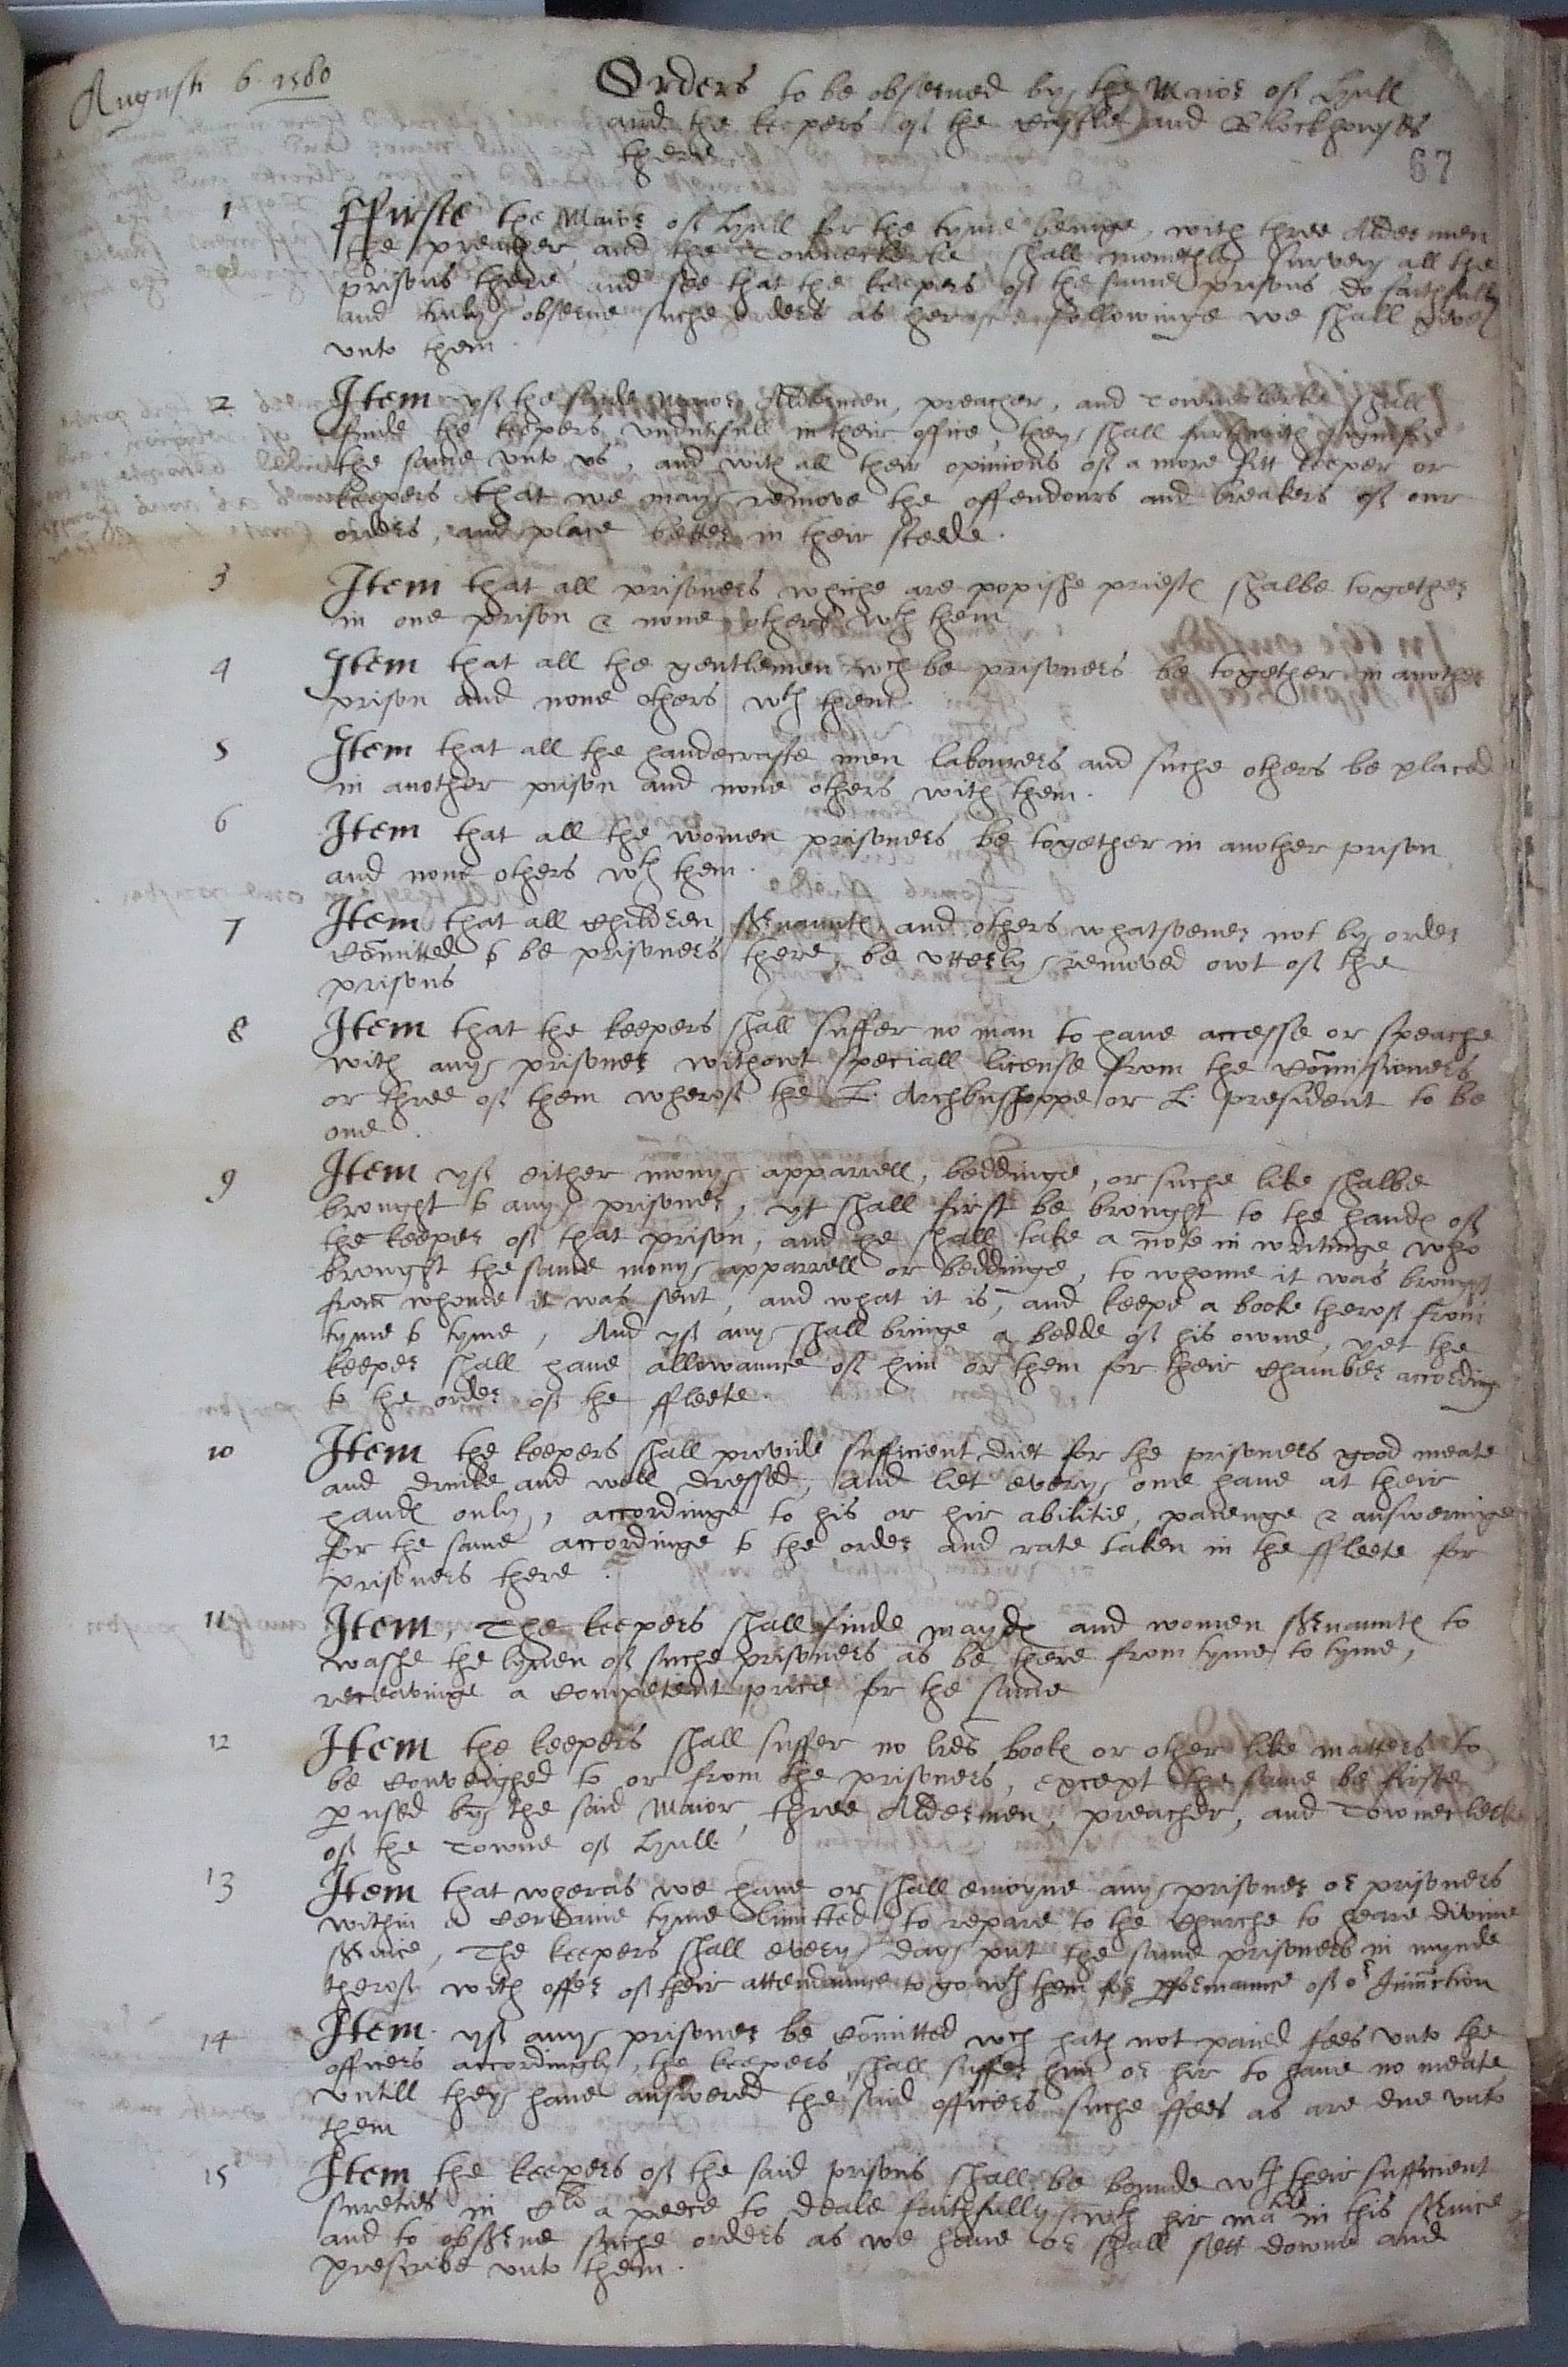 Augusti 6. 1580
Orders to be obserued by the Maior of Hull
and the keepers of the Castle and Blockhowses
there
67
1 Ffirste the Maior of Hull for the tyme beinge, with three Aldermen
the preacher, and the Towneclerke shall monethly survey all the
prisons there and see that the keepers of the same prisons do faithfully
and truly obserue suche orders as hereafter followinge we shall geve
vnto them.
2 Item yf the saide Maior, Aldermen, preacher, and Towneclerke shall
finde the keepers vndutifull in their office, they shall furthwith signifie
the same vnto vs, and with all their opinions of a more fitt keeper or
keepers that we may remove the offendours and breakers of our
orders, and place better in their steede.
3 Item that all prisoners whiche are popishe priestes shalbe together
in one prison & none others wth them
4 Item that all the gentlemen wch be prisoners be together in another
prison and none others wth them.
5 Item that all the handecrafte men labourers and suche others be placed
in another prison and none others with them.
6 Item that all the women prisoners be together in another prison
and none others wth them.
7 Item that all children seruauntes and others whatsoever not by order
Comitted to be prisoners there, be vtterly removed owt of the
prisons
8 Item that the keepers shall suffer no man to haue accesse or speache
with any prisoner withowt speciall license from the Comissioners
or three of them wherof the L. Archbusshoppe or L. president to be
one.
9 Item yf either mony apparrell, beddinge, or suche like shalbe
brought to any prisoner, yt shall first be brought to the handes of
the keeper of that prison, and he shall take a note in writinge who
brought the same mony apparrell or beddinge, to whome it was brought
from whome it was sent, and what it is, and keepe a booke therof from
tyme to tyme, And yf any shall bringe a bedde of his owne, yet the
keeper shall haue allowaunce of him or them for their chamber according
to the order of the ffleete
10 Item the keepers shall provide sufficient diet for the prisoners good meate
and drinke and well dressed, and let every one haue at their
handes only, accordinge to his or hir abilitie, paienge & answeringe
for the same accordinge to the order and rate taken in the ffleete for
prisoners there.
11 Item, The keepers shall finde maydes and women seruauntes to
washe the lynen of suche prisoners as be there from tyme to tyme,
receavinge a competent price for the same
12 Item the keepers shall suffer no lres bookes or other like matters to
be conveighed to or from the prisoners, except the same be firste
perused by the said Maior, three Aldermen, preacher, and Towneclerke
of the Towne of Hull.
13 Item that wheras we haue or shall enioyne any prisoner or prisoners
within a certaine tyme limitted to repare to the Churche to heare divine
seruice, The keepers shall every day put the same prisoners in mynde
therof with offer of their attendaunce to go wth them for pformaunce of or Iniunction
14 Item. yf any prisoner be Comitted wch hath not paied fees vnto the
officers accordingly, the keepers shall suffer him or hir to haue no meate
vntill they haue answered the said officers suche ffees as are due vnto
them
15 Item the keepers of the said prisons shall be bounde wth their sufficient
sureties in Cli a peece to deale faithfully wth hir matie in this seruice
and to obserue suche orders as we haue or shall sett downe and
prescribe vnto them.